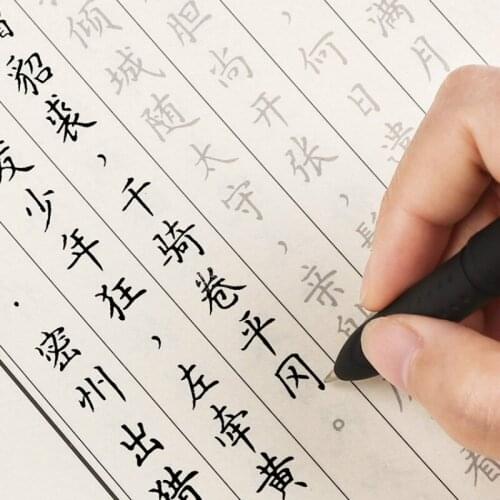 ·密州出猎
发少年狂，左牵黄
貂裘，千骑卷平冈。
倾城随太守，亲射
看
胆尚开张，鬓
，何日遣
满月